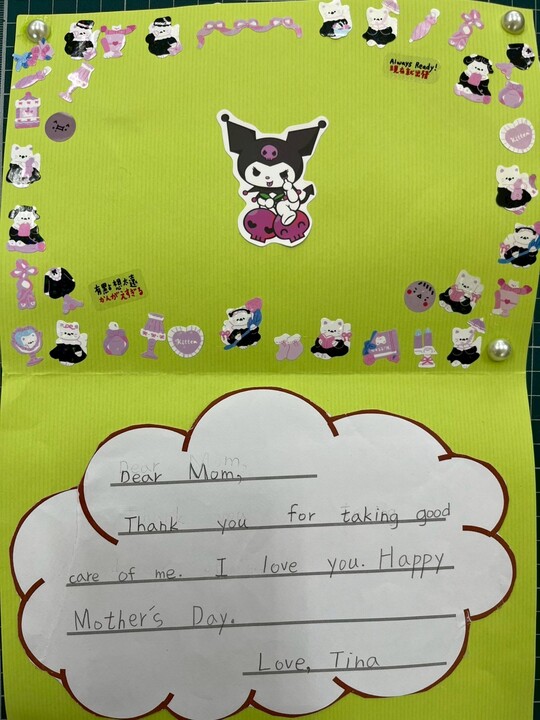 Always Ready!
現在就出發
Kitten
有點想太遠
かんがえすぎる
Kitten
Dear Mom,
Thank you for taking good
care of me. I love you. Happy
Mother's Day.
Love, Tina